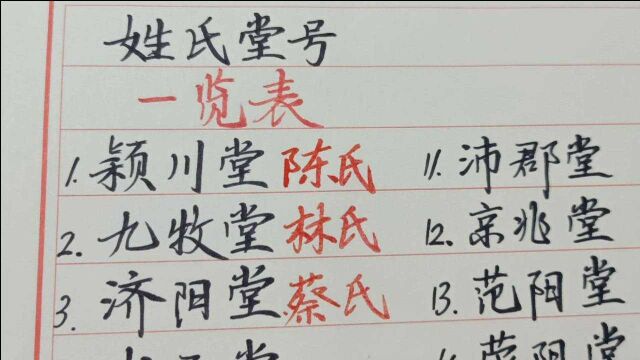 姓氏堂号
一览表
1. 颍川堂 陈氏 11. 沛郡堂
2. 九牧堂 林氏 12. 京兆堂
3. 济阳堂 蔡氏 13. 范阳堂